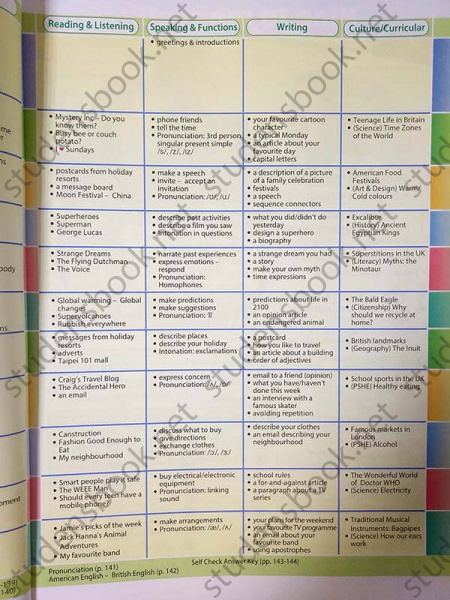 Reading & Listening
Speaking & Functions
Writing
Culture/Curricular
• greetings & introductions
• Mystery Inc – Do you
know them?
• Busy bee or couch
potato?
• I ♥ Sundays
• phone friends
• tell the time
• Pronunciation: 3rd person
singular present simple
/s/, /z/, /ɪz/
• your favourite cartoon
character
• a typical Monday
• an article about your
favourite day
• capital letters
• Teenage Life in Britain
• (Science) Time Zones
of the World
• postcards from holiday
resorts
• a message board
• Moon Festival – China
• make a speech
• invite – accept an
invitation
• Pronunciation:
• a description of a picture
of a family celebration
• festivals
• a speech
• sequence connectors
• American Food
Festivals
• (Art & Design) Warm/
Cold colours
• Superheroes
• Superman
• George Lucas
• describe past activities
• describe a film you saw
• Intonation in questions
• what you did/didn't do
yesterday
• design a superhero
• a biography
• Excalibur
• (History) Ancient
Egyptian Kings
• Strange Dreams
• The Flying Dutchman
• The Voice
• narrate past experiences
• express emotions –
respond
• Pronunciation:
Homophones
• a strange dream you had
• a story
• make your own myth
• time expressions
• Superstitions in the UK
• (Literacy) Myths: the
Minotaur
• Global warming – Global
changes
• Supervolcanoes
• Rubbish everywhere
• make predictions
• make suggestions
• Pronunciation: 'll
• predictions about life in
2100
• an opinion article
• an endangered animal
• The Bald Eagle
• (Citizenship) Why
should we recycle at
home?
• messages from holiday
resorts
• adverts
• Taipei 101 mall
• describe places
• describe your holiday
• Intonation: exclamations
• a postcard
• how you like to travel
• an article about a building
• order of adjectives
• British landmarks
• (Geography) The Inuit
• Craig's Travel Blog
• The Accidental Hero
• an email
• express concern
• Pronunciation:
• email to a friend (opinion)
• what you have/haven't
done this week
• an interview with a
famous skater
• avoiding repetition
• School sports in the UK
• (PSHE) Healthy eating
• Canstruction
• Fashion Good Enough to
Eat
• My neighbourhood
• discuss what to buy
• give directions
• exchange clothes
• Pronunciation:
• describe your clothes
• an email describing your
neighbourhood
• Famous markets in
London
• (PSHE) Alcohol
• Smart people play it safe
• The WEEE Man
• Should every teen have a
mobile phone?
• buy electrical/electronic
equipment
• Pronunciation: linking
sound
• school rules
• a for-and-against article
• a paragraph about a TV
series
• The Wonderful World
of Doctor WHO
• (Science) Electricity
• Jamie's picks of the week
• Jack Hanna's Animal
Adventures
• My favourite band
• make arrangements
• Pronunciation: /æ/, /ʌ/
• your plans for the weekend
• your favourite TV programme
• an email about your
favourite band
• using apostrophes
• Traditional Musical
Instruments: Bagpipes
• (Science) How our ears
work
Pronunciation (p. 141)
American English – British English (p. 142)
Self Check Answer Key (pp. 143-144)
studentsbook.net